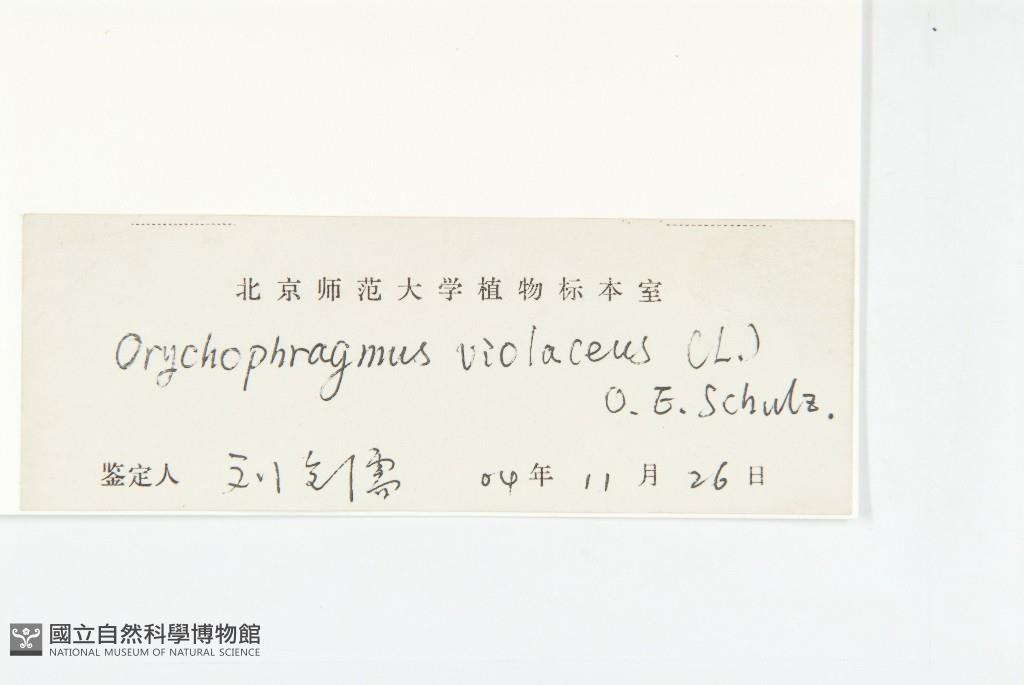 北京师范大学植物标本室
Orychophragmus violaceus (L.)
O. E. Schulz.
鉴定人 刘剑儒 04年 11月 26日
國立自然科學博物館
NATIONAL MUSEUM OF NATURAL SCIENCE